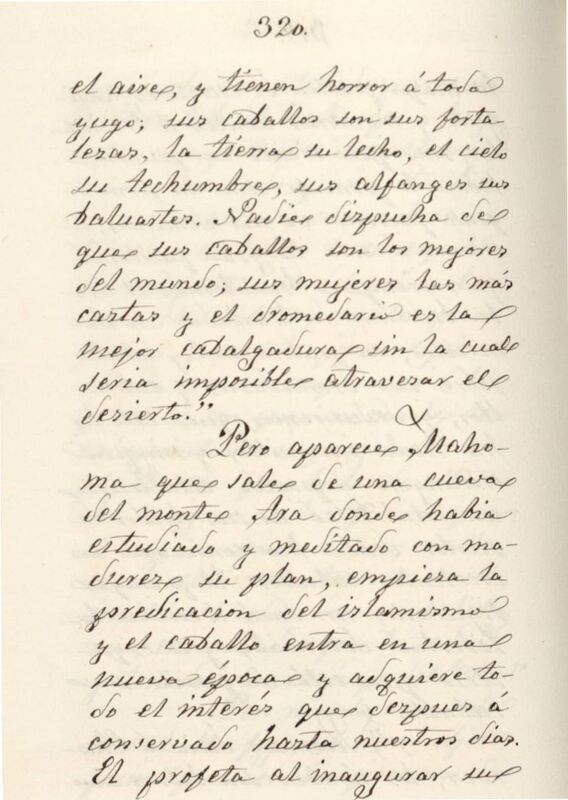 320.
el aire, y tienen horror á todo
yugo; sus caballos son sus forta
lezas, la tierra su lecho, el cielo
su techumbre, sus alfanges sus
baluartes. Nadie dispucha de
que sus caballos son los mejores
del mundo; sus mujeres las más
castas y el dromedario es la
mejor cabalgadura sin la cual
seria imposible atravesar el
desierto."
Pero aparece Maho-
ma que sale de una cueva
del monte Ara donde habia
estudiado y meditado con ma-
durez su plan, empieza la
predicacion del islamismo
y el caballo entra en una
nueva época y adquiere to-
do el interés que despues á
conservado hasta nuestros dias.
El profeta al inaugurar su